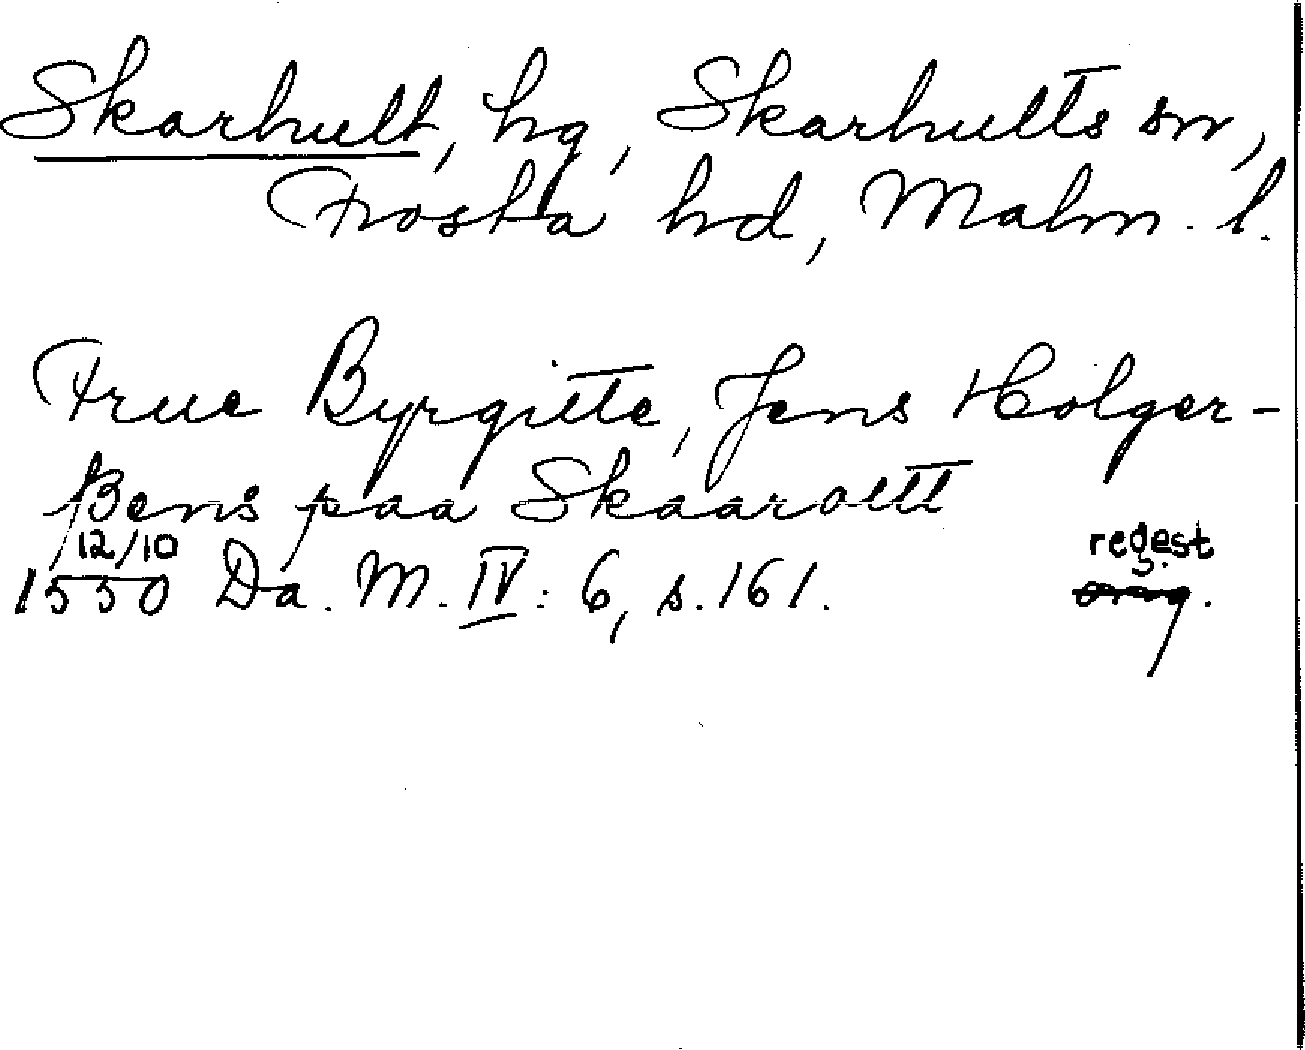 Skarhult, hg, Skarhults sn,
Frosta hd, Malm. l.
Frue Byrgitte, Jens Holger-
ßens paa Skaaroltt
12/10 regest
1550 Da. M. IV: 6, s. 161. orig.